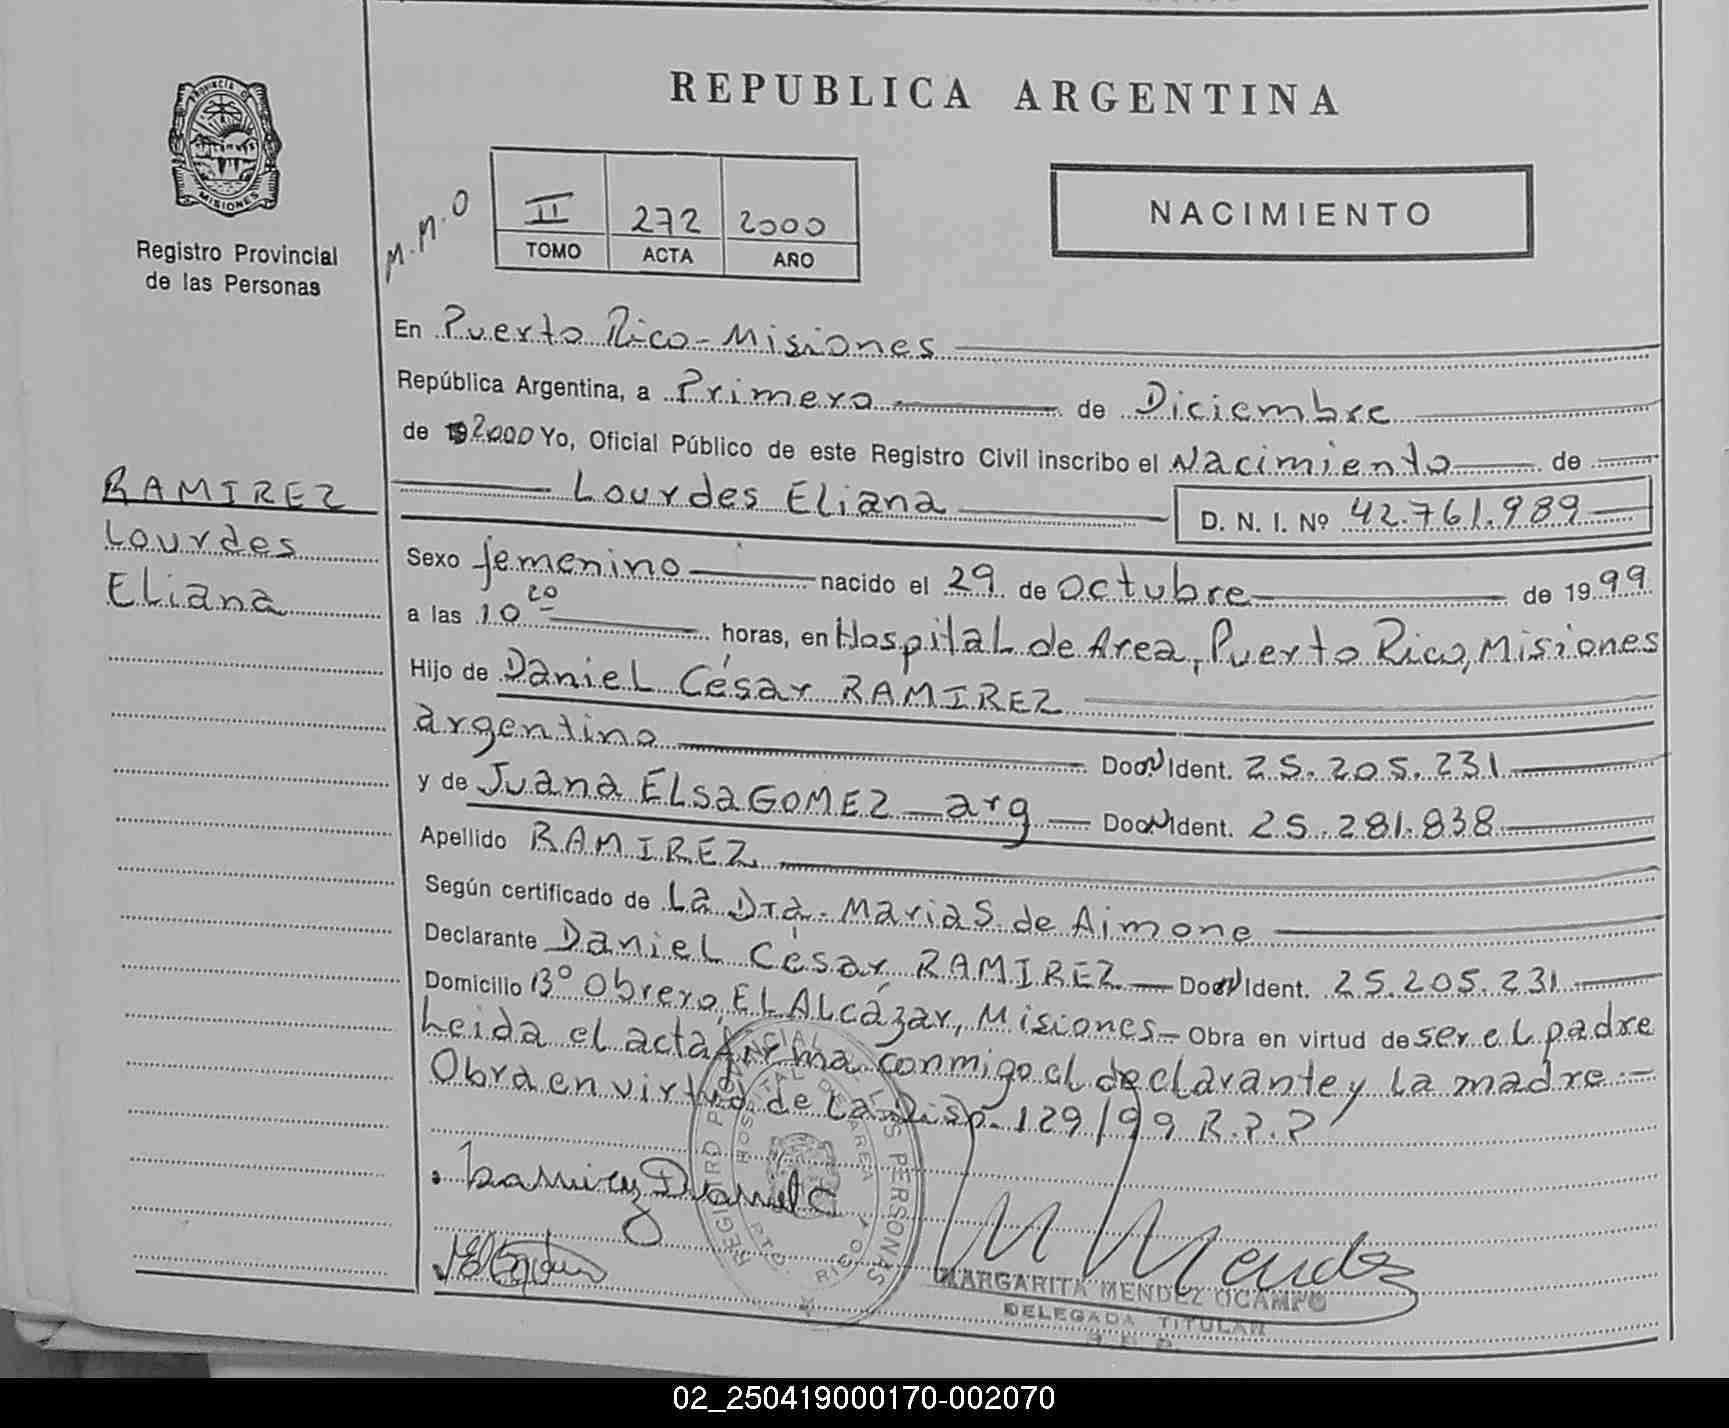 REPUBLICA ARGENTINA
PROVINCIA DE
MISIONES
Registro Provincial
de las Personas
M.M.O
II 272 2000
TOMO ACTA AÑO
NACIMIENTO
En Puerto Rico - Misiones
República Argentina, a Primero de Diciembre
de 2000 Yo, Oficial Público de este Registro Civil inscribo el Nacimiento de
Lourdes Eliana D. N. I. Nº 42.761.989
RAMIREZ
Lourdes
Eliana
Sexo femenino nacido el 29 de Octubre de 1999
a las 10 20 horas, en Hospital de Area, Puerto Rico, Misiones
Hijo de Daniel César RAMIREZ
argentino Doc. Ident. 25.205.231
y de Juana ELsa GOMEZ - arg - Doc. Ident. 25.281.838
Apellido RAMIREZ
Según certificado de La Dra. Maria S. de Aimone
Declarante Daniel César RAMIREZ - Doc. Ident. 25.205.231
Domicilio Bº Obrero, EL ALcázar, Misiones - Obra en virtud de ser eL padre
Leida el acta firma conmigo el declarante y La madre.-
Obra en virtud de La Disp. 129/99 R.P.P
Ramirez Daniel C
M Mendez
REGISTRO PROVINCIAL DE LAS PERSONAS
HOSPITAL DE AREA
PTO. RICO
MARGARITA MENDEZ OCAMPO
DELEGADA TITULAR
02_250419000170-002070